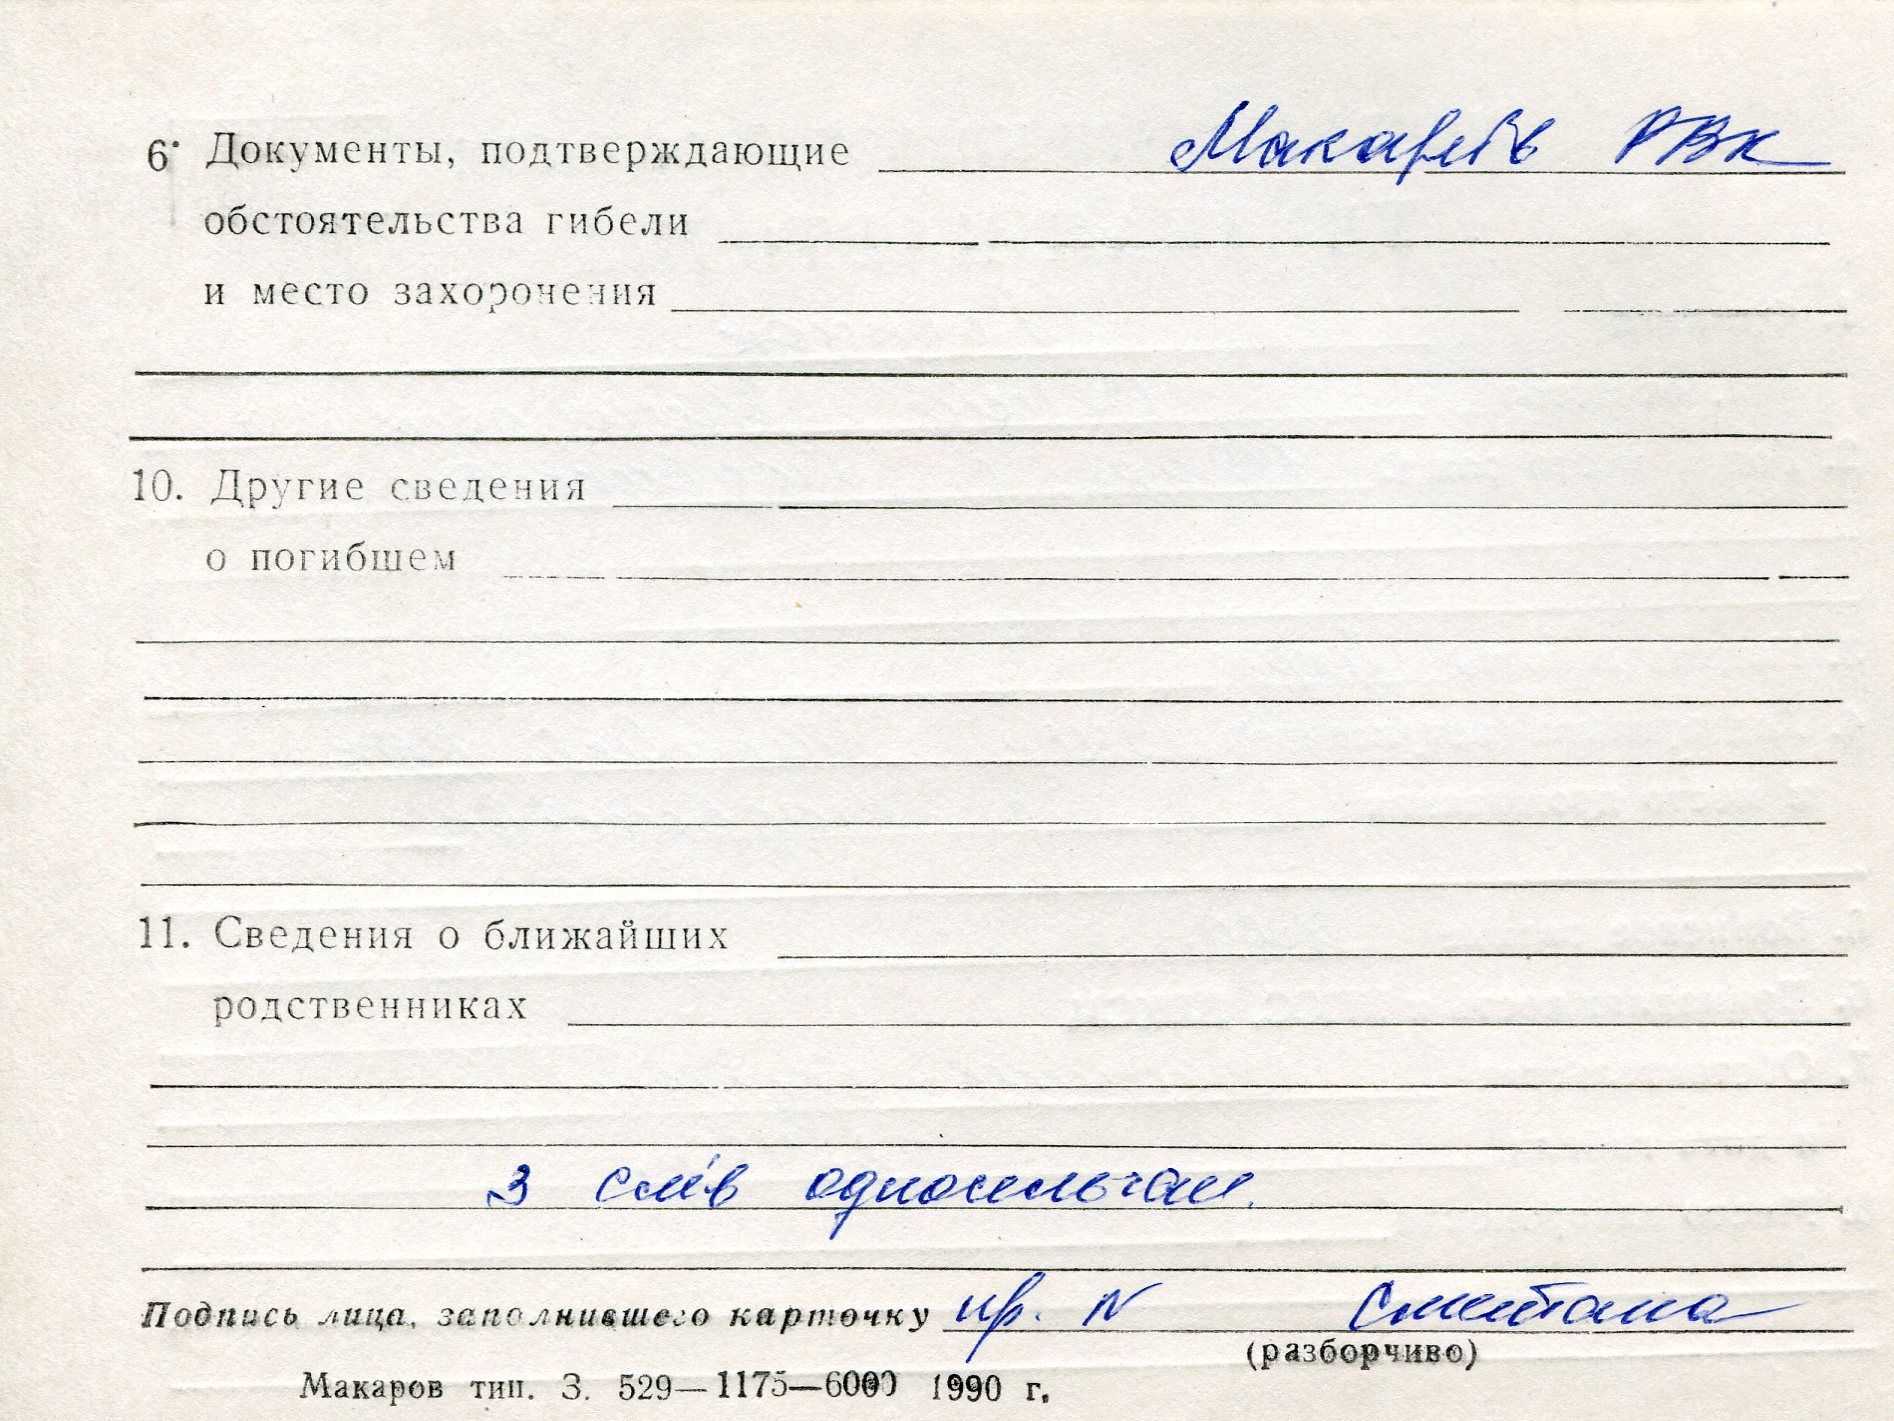 6. Документы, подтверждающие Макарів РВК
обстоятельства гибели
и место захоронения
10. Другие сведения
о погибшем
11. Сведения о ближайших
родственниках
З слів односельчан.
Подпись лица, заполнившего карточку пр. N Сметана
(разборчиво)
Макаров тип. З. 529—1175—6000 1990 г.